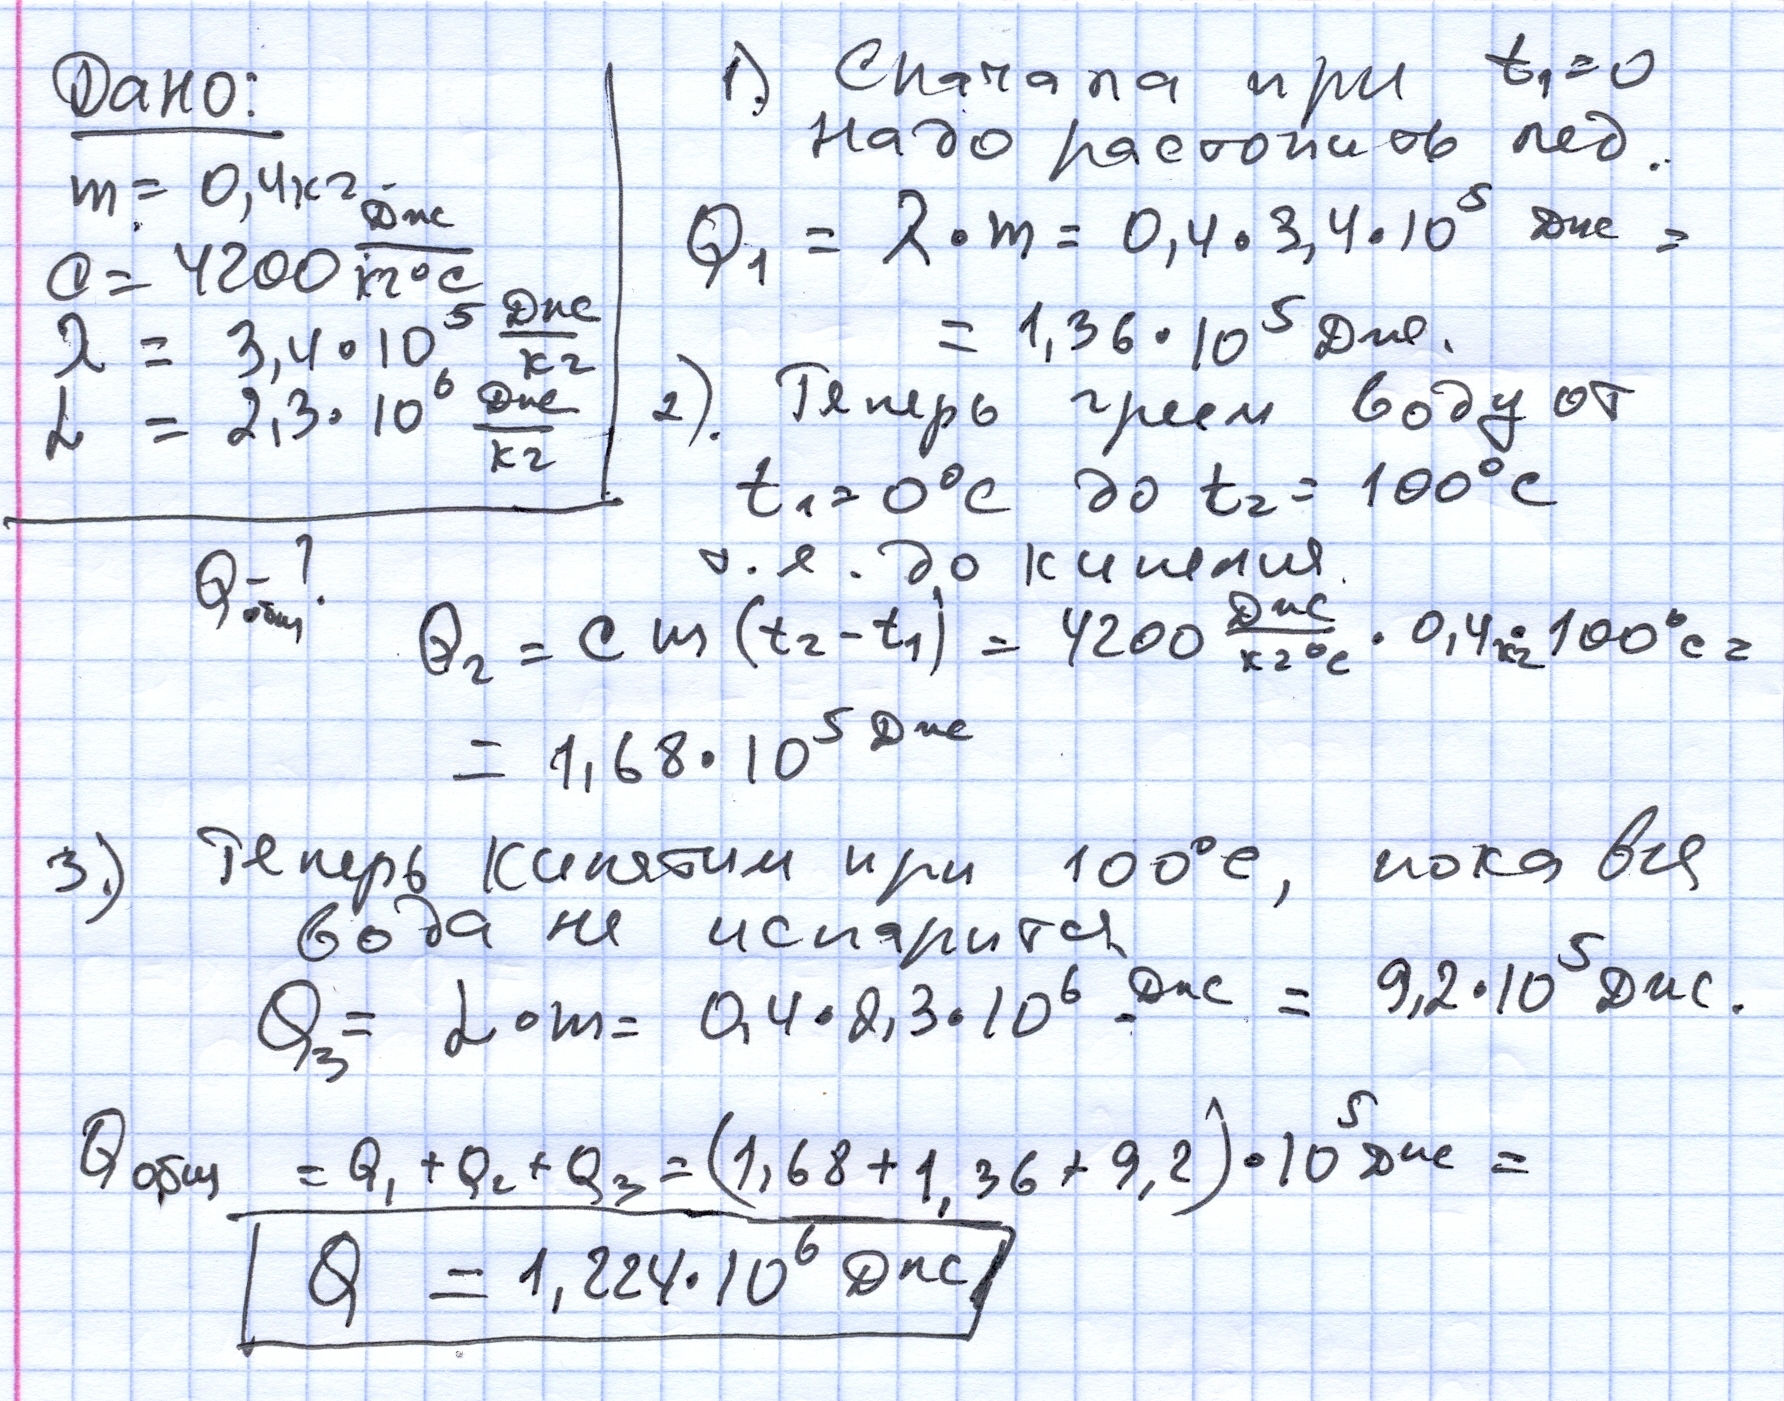 Дано:
m = 0,4кг
c = 4200 Дж/кг°С
λ = 3,4·10⁵ Дж/кг
L = 2,3·10⁶ Дж/кг
Qобщ - ?
1). Сначала при t₁=0
надо растопить лед.
Q₁ = λ·m = 0,4·3,4·10⁵ Дж =
= 1,36·10⁵ Дж.
2). Теперь греем воду от
t₁= 0°С до t₂= 100°С
т.е. до кипения.
Q₂ = c m (t₂-t₁) = 4200 Дж/кг°С · 0,4кг·100°С =
= 1,68·10⁵ Дж
3.) Теперь кипятим при 100°С, пока вся
вода не испарится
Q₃= L·m= 0,4·2,3·10⁶ Дж = 9,2·10⁵ Дж.
Qобщ = Q₁+Q₂+Q₃=(1,68+1,36+9,2)·10⁵ Дж =
Q = 1,224·10⁶ Дж